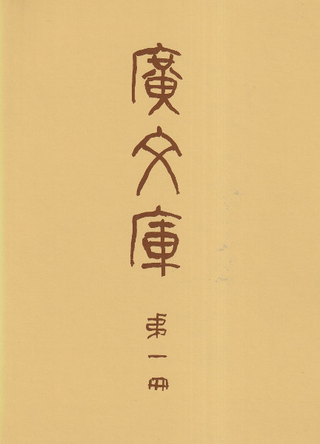 廣文庫
第一冊